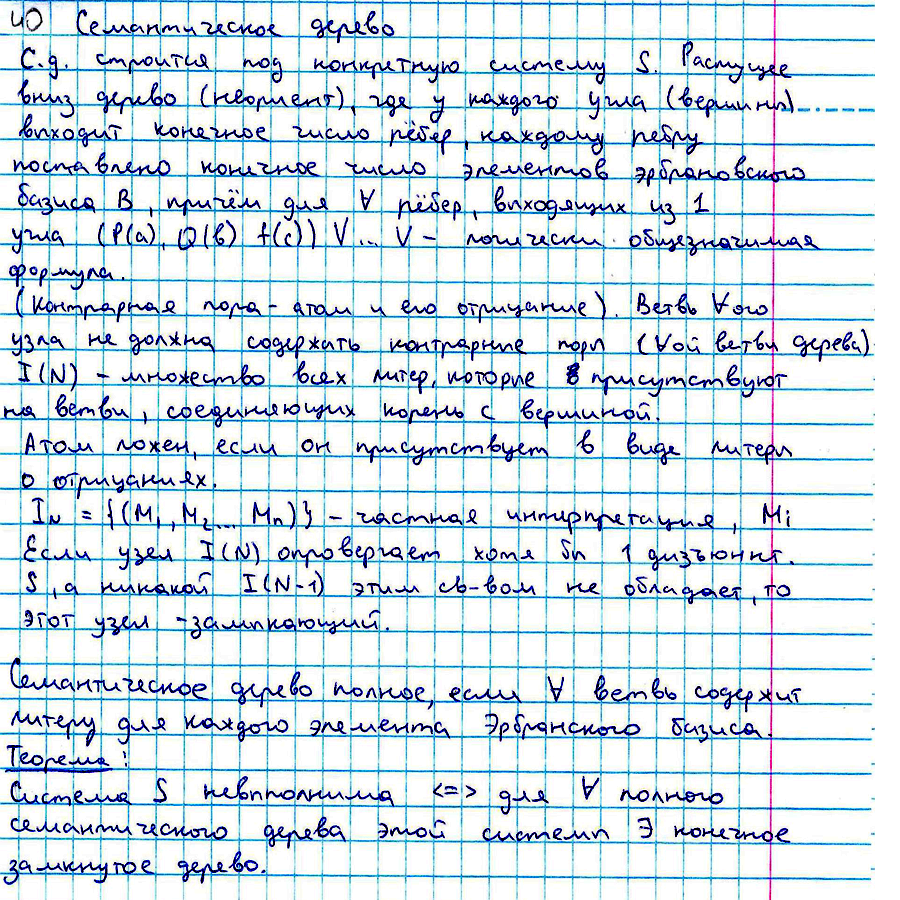 40 Семантическое дерево
С.д. строится под конкретную систему S. Растущее
вниз дерево (неориент), где у каждого угла (вершины)
выходит конечное число рёбер, каждому ребру
поставлено конечное число элементов эрбрановского
базиса B, причём для ∀ рёбер, выходящих из 1
угла (P(a), Q(b) f(c)) V ... V - логически общезначимая
формула.
(Контрарная пара - атом и его отрицание). Ветвь ∀ого
узла не должна содержать контрарные пары (∀ой ветви дерева)
I(N) - множество всех литер, которые присутствуют
на ветви, соединяющих корень с вершиной.
Атом ложен, если он присутствует в виде литеры
о отрицаниях.
I_N = {(M₁, M₂... Mn)} - частная интерпретация, Mi
Если узел I(N) опровергает хотя бы 1 дизъюнкт.
S, а никакой I(N-1) этим св-вом не обладает, то
этот узел - замыкающий.
Семантическое дерево полное, если ∀ ветвь содержит
литеру для каждого элемента Эрбранского базиса.
Теорема:
Система S невыполнима <=> для ∀ полного
семантического дерева этой системы ∃ конечное
замкнутое дерево.